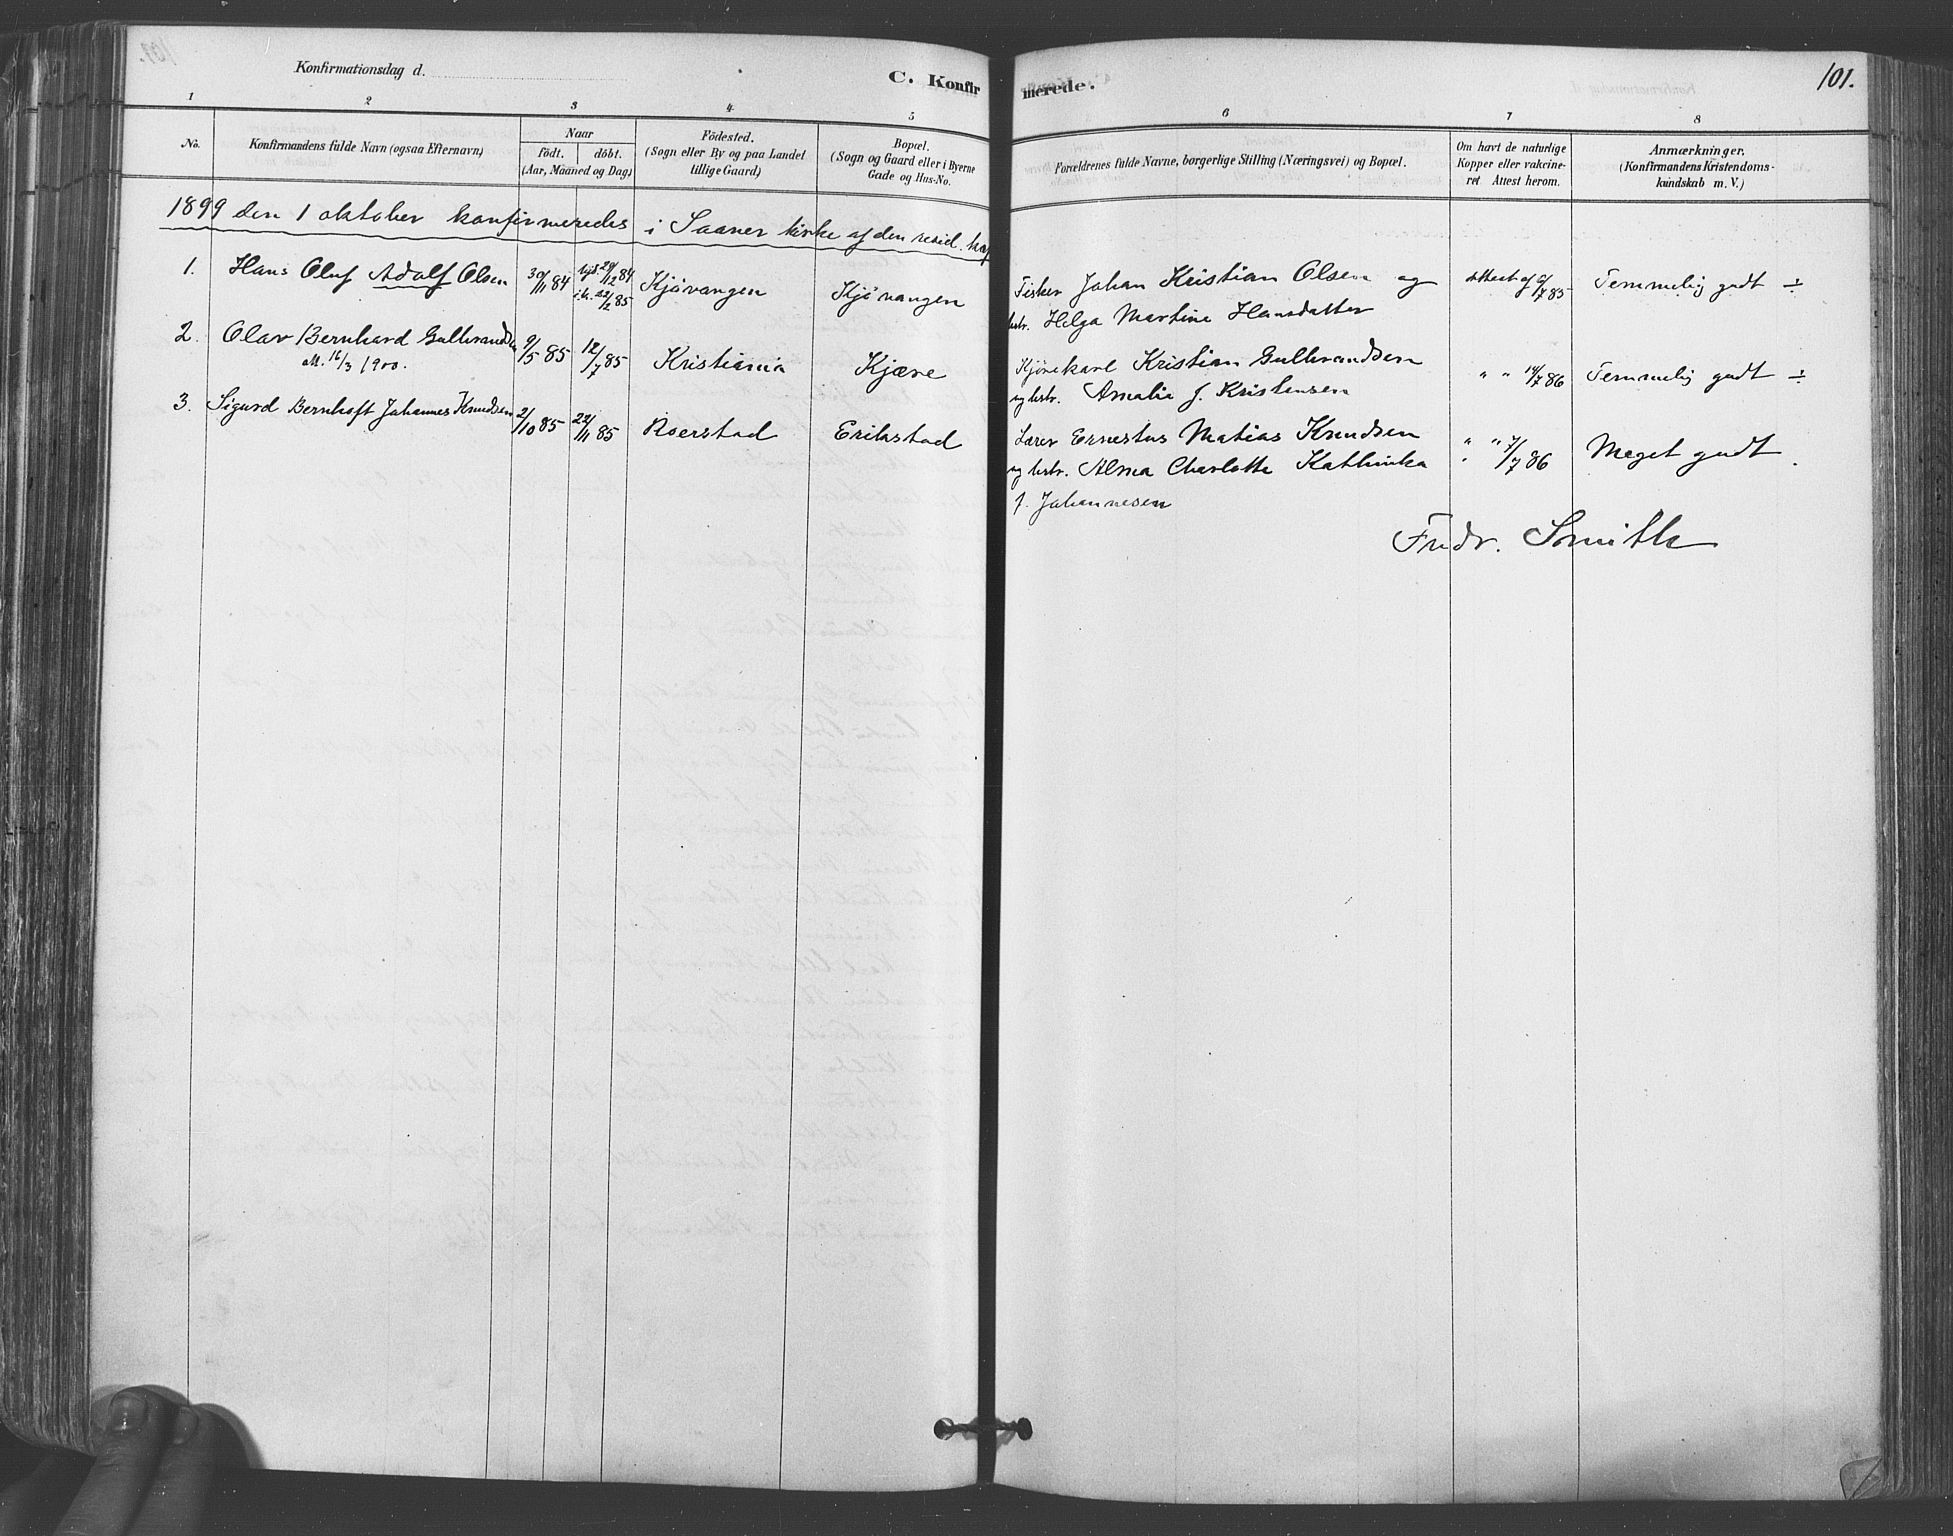 Konfirmationsdag d.
C. Konfirmerede.
101.
1 2 3 4 5 6 7 8
No.
Konfirmandens fulde Navn (ogsaa Efternavn)
Naar
födt. döbt.
(Aar, Maaned og Dag)
Födested.
(Sogn eller By og paa Landet
tillige Gaard)
Bopæl.
(Sogn og Gaard eller i Byerne
Gade og Hus-No.
Forældrenes fulde Navne, borgerlige Stilling (Næringsvei) og Bopæl.
Om havt de naturlige
Kopper eller vakcine-
ret Attest herom.
Anmærkninger,
(Konfirmandens Kristendoms-
kundskab m. V.)
1899 den 1 oktober konfirmeredes i Saaner kirke af den resid. kap
1. Hans Oluf Adolf Olsen 30/11 84 hjd 29/12 84 i k. 22/2 85 Kjøvangen Kjøvangen Fisker Johan Kristian Olsen og Attest af 6/7 85 Temmelig godt ÷
hstr. Helga Martine Hansdatter
2. Olav Bernhard Gulbrandsen 9/5 85 12/7 85 Kristiania Kjære Kjørekarl Kristian Gulbrandsen " " 14/7 86 Temmelig godt ÷
att. 16/3 1900. og hstr. Amalia f. Kristensen
3. Sigurd Bernhoft Johannes Knudsen 2/10 85 22/11 85 Roerstad Erikstad Lærer Ernestus Matias Knudsen " " 7/7 86 Meget godt.
og hstr. Alma Charlotte Kathinka
f. Johannesen
Fredr. Smith